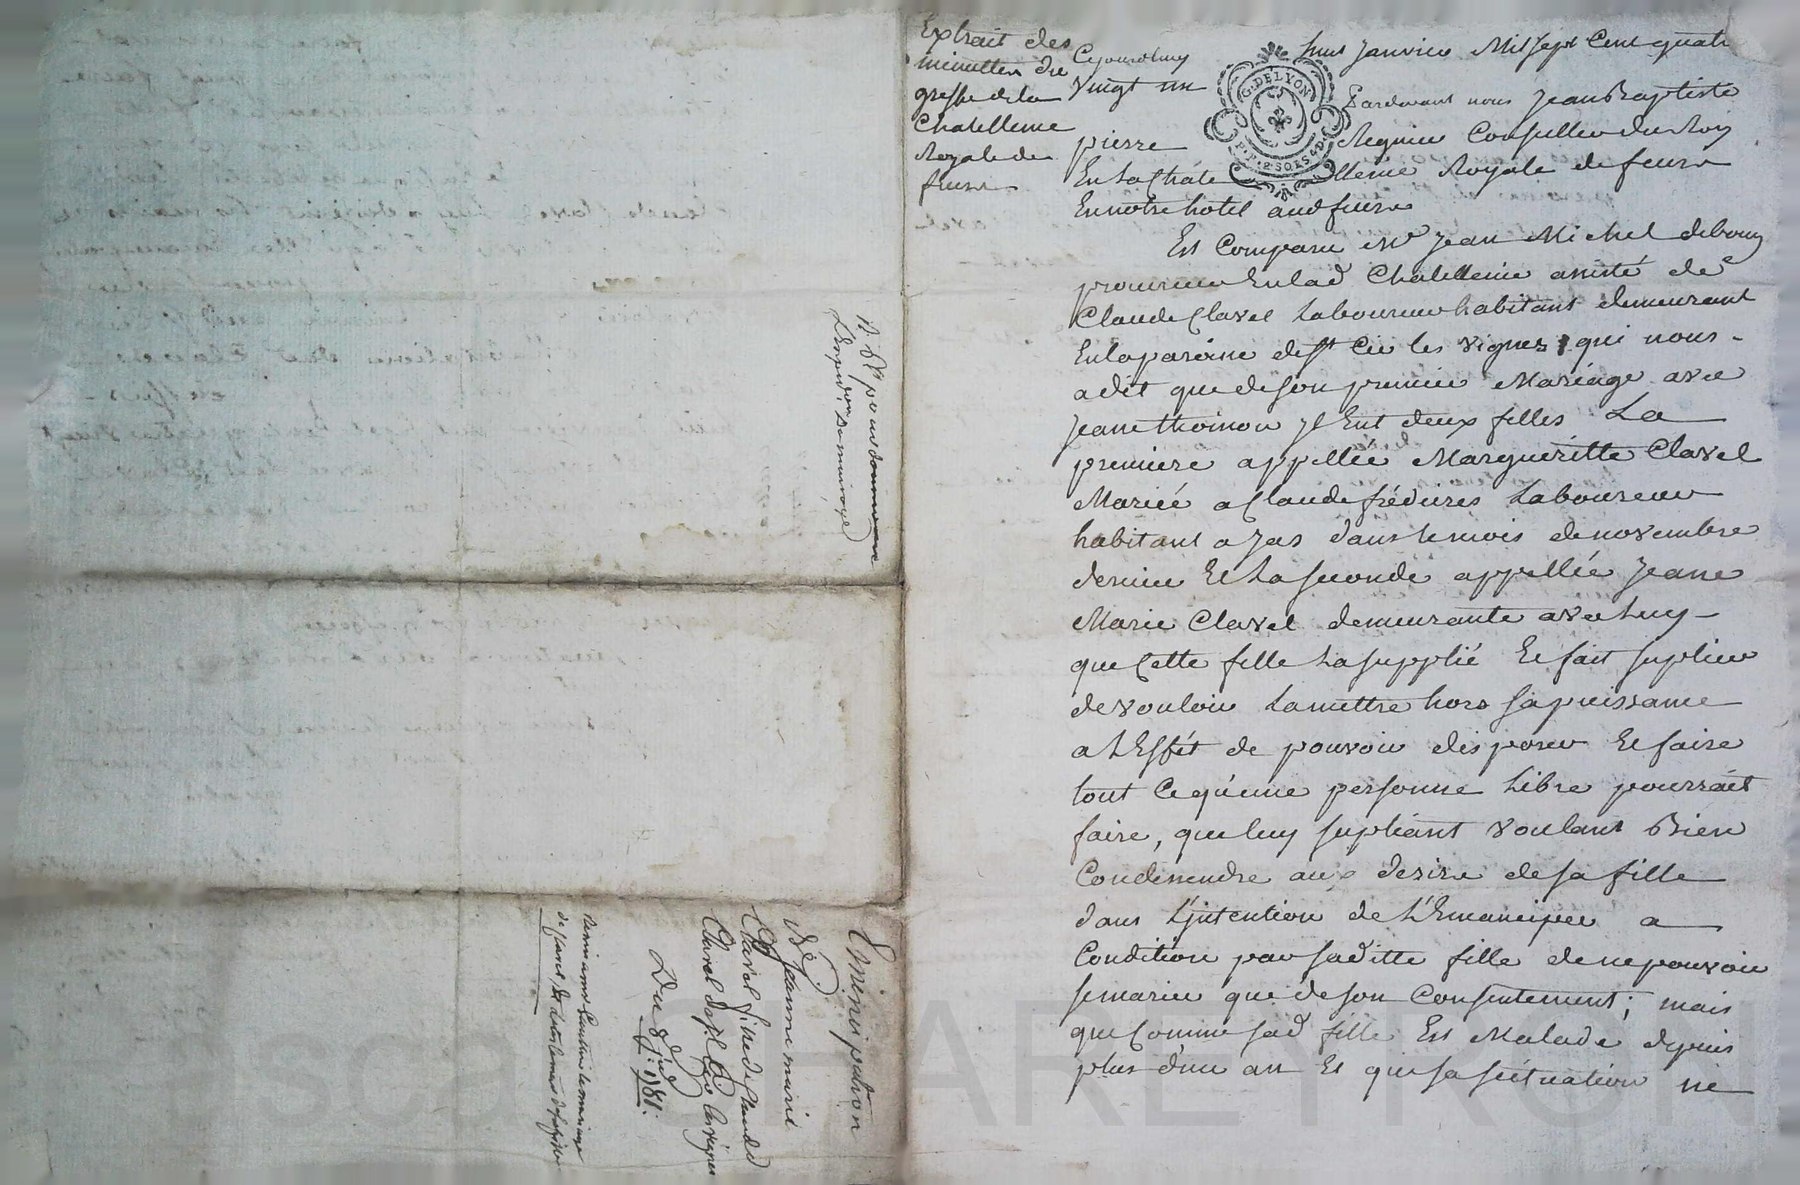 Extrait des
minuttes du
greffe de la
Chatellenie
Royale de
feurs
Cejourdhuy huit Janvier Mil sept Cent quatre
vingt un
G. DE LYON
P.P. 2 SOLS 4 D.
Pardevant nous Jean Baptiste
pierre Regnier Conseiller du Roy
En La Chatellenie Royale de feurs
En notre hotel aud feurs
Est Comparu Mr Jean Michel debouy
procureur En lad Chatellenie assisté de
Claude Clavel Laboureur habitant demeurant
En la paroisse de st Cir les vignes, qui nous
a dit que de son premier Mariage avec
Jeane thoinon Jl Eut deux filles La
premiere appellée Margueritte Clavel
Mariée a Claude Laboureur
habitant a Jas dans le mois de novembre
dernier Et La seconde appellée Jeane
Marie Clavel demeurante avec Luy
que Cette fille La supplié Et fait suplier
de vouloir La mettre hors sa puissance
a L'Effét de pouvoir disposer Et faire
tout Ce qu'une personne Libre pourrait
faire, que luy supliant voulant Bien
Condesendre au desire de sa fille
dans L'jntention de L'Emanciper a
Condition par saditte fille de ne pouvoir
se marier que de son Consentement; mais
que Comme sad fille Est Malade depuis
plus d'un an Et que sa situation ne
Emencipation
de Jeanne marie
Clavel fille de Claude
Clavel de st Cir les vignes
Du 8 J. 1781.
SHAREYRON